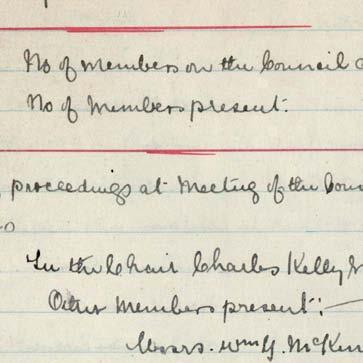 No of members on the Council
No of Members present.
proceedings at Meeting of the Coun
In the Chair Charles Kelly
Other Members present:—
Messrs. Wm Y. McKen